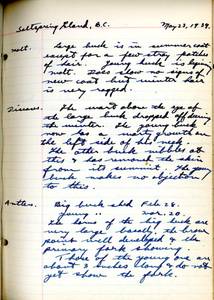 Saltspring Island, B.C. May 23, 1929.
Molt. Large buck is in summer coat
except for a few stray patches
of hair. Young buck is laying
molt. Does show no signs of
new coat but winter hair
is very ragged.
Disease. The wart above the eye of
the large buck dropped off during
the winter. The young buck
now has a warty growth on
the left side of his neck.
The other buck nibbles at
this & has removed the skin
from its summit. The young
buck makes no objection
to this.
Antlers. Big buck shed Feb 28.
Young " Mar. 20.
The horns of the big buck are
very large basally, the brow
point well developed & the
primary fork showing.
Those of the young one are
about inches long & do not
yet show the fork.